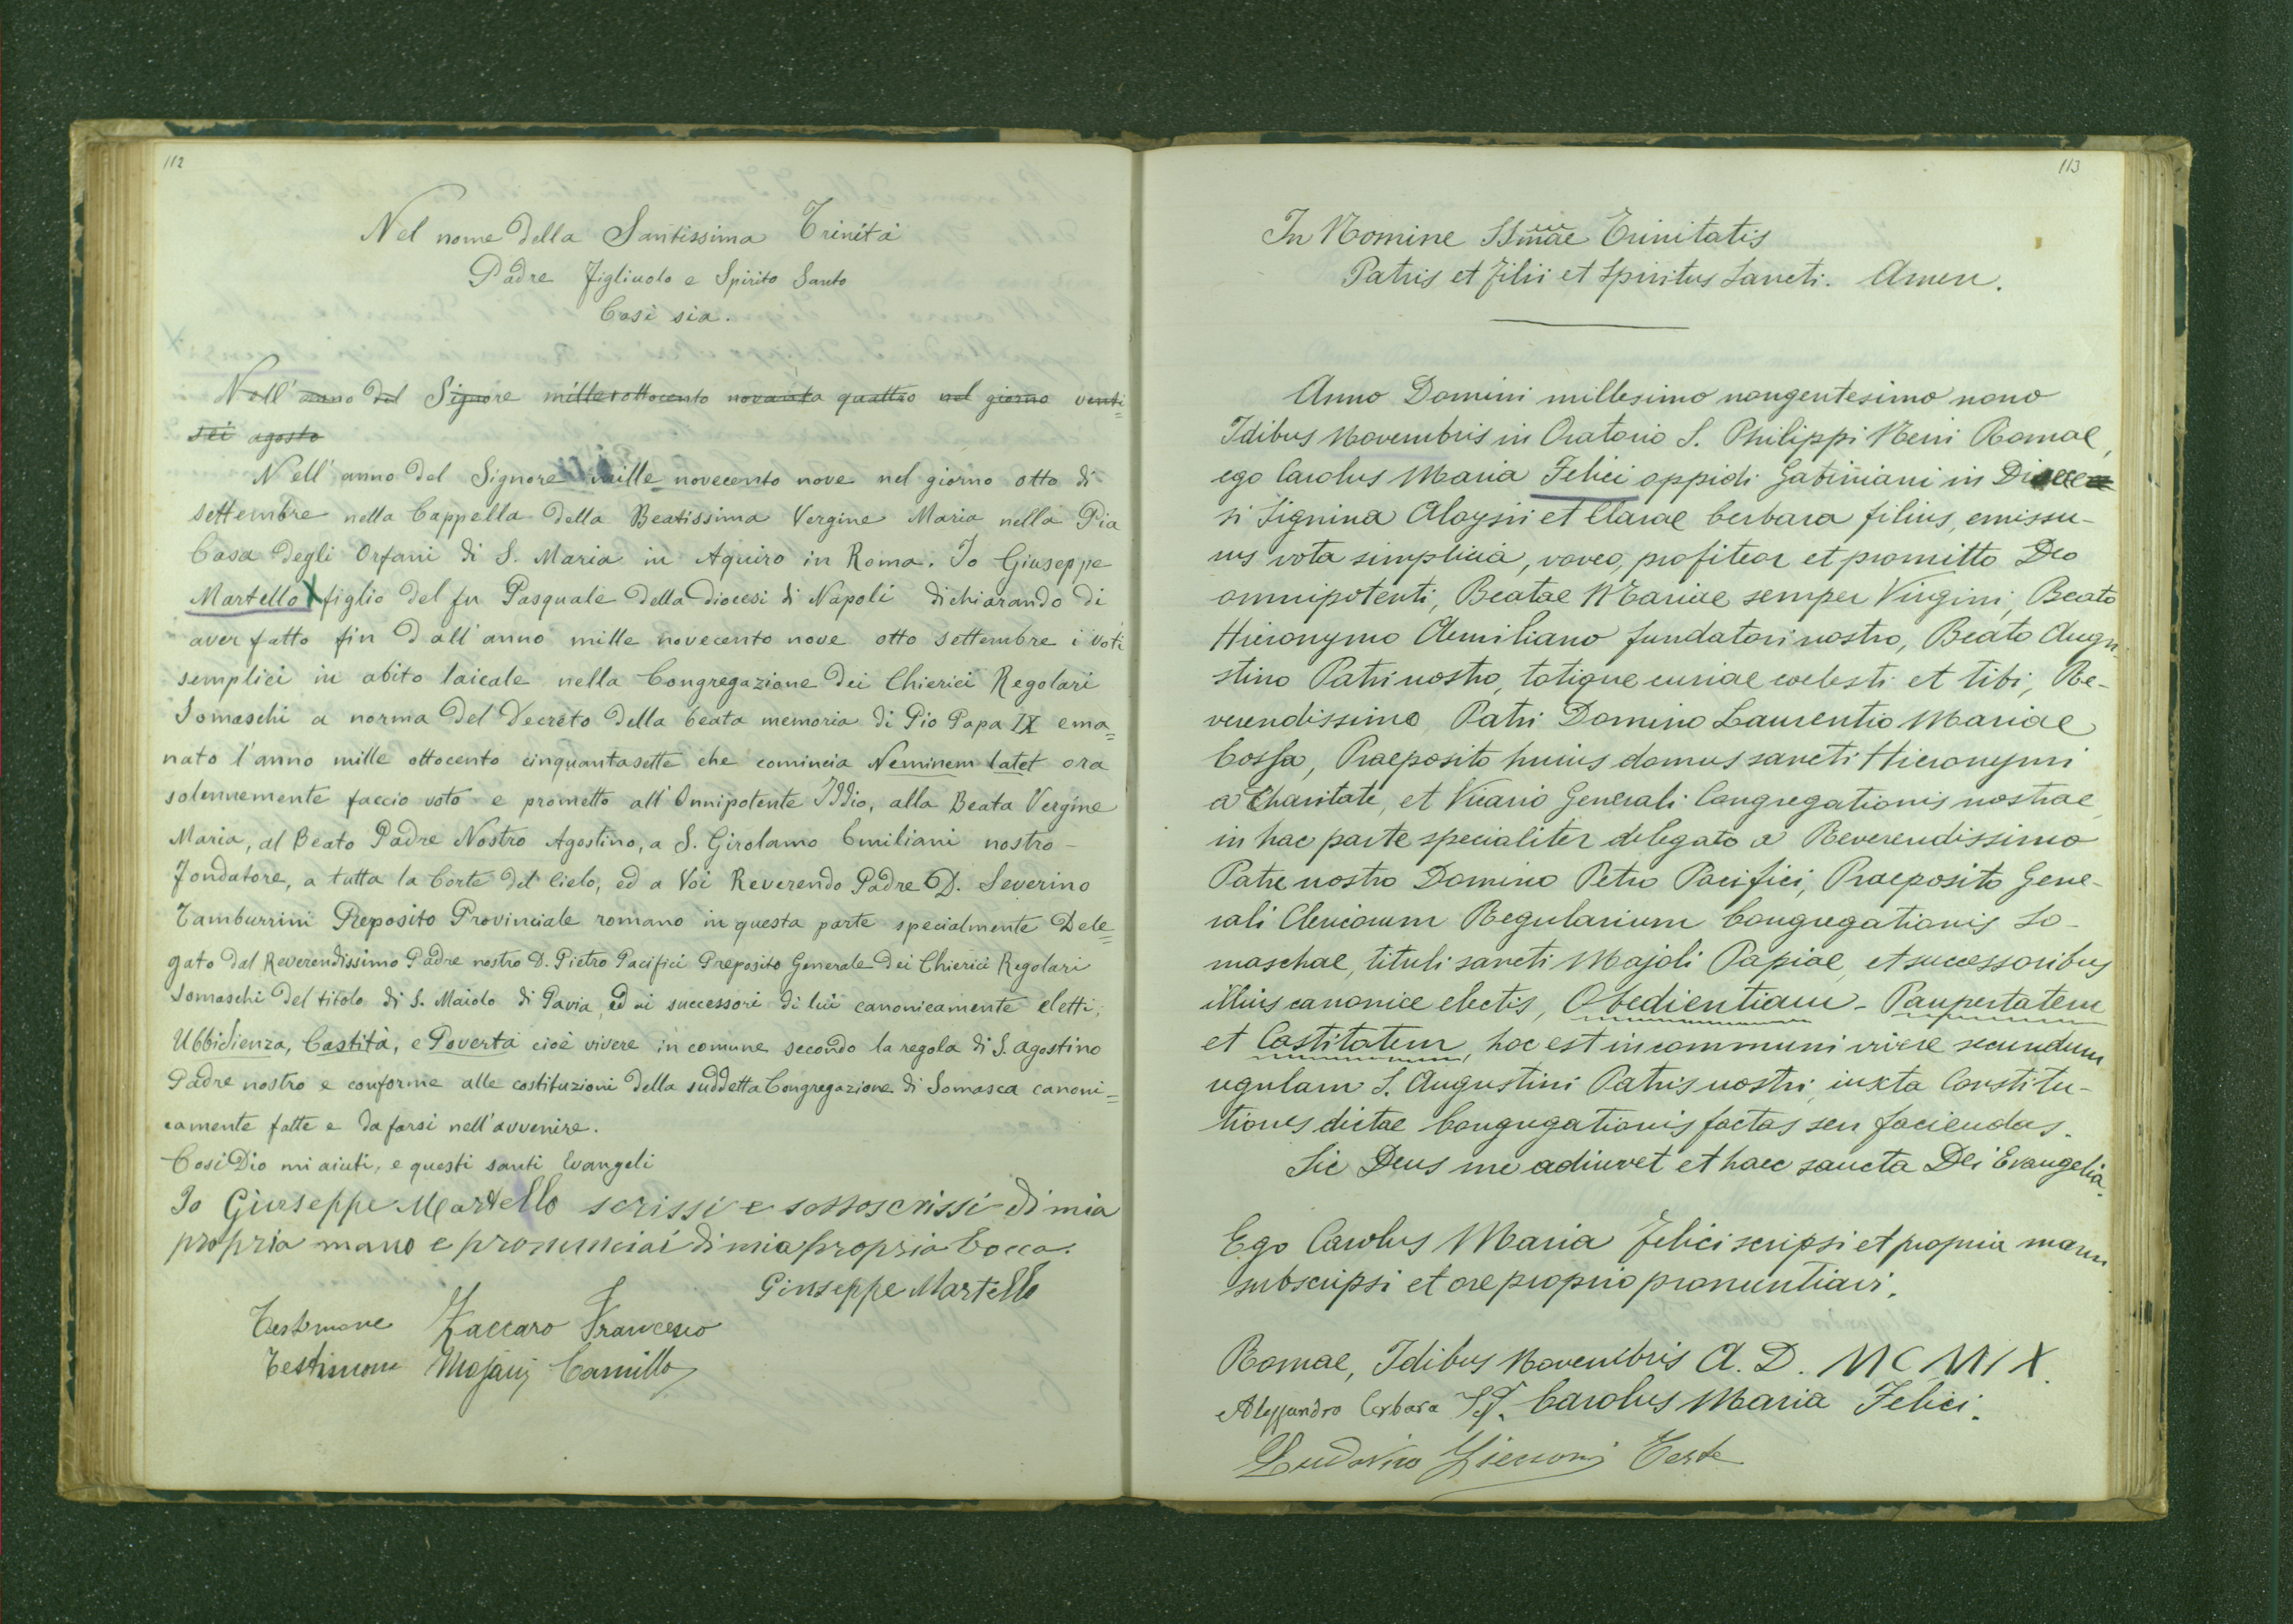 112
Nel nome della Santissima Trinità
Padre Figliuolo e Spirito Santo
Così sia.
Nell' anno del Signore milleottocento novanta quattro nel giorno venti=
sei agosto
Nell' anno del Signore mille novecento nove nel giorno otto di
settembre nella Cappella della Beatissima Vergine Maria nella Pia
Casa degli Orfani di S. Maria in Aquiro in Roma. Io Giuseppe
Martello X figlio del fu Pasquale della diocesi di Napoli dichiarando di
aver fatto fin dall'anno mille novecento nove otto settembre i voti
semplici in abito laicale nella Congregazione dei Chierici Regolari
Somaschi a norma del Decreto della beata memoria di Pio Papa IX ema=
nato l'anno mille ottocento cinquantasette che comincia Neminem latet ora
solennemente faccio voto e prometto all' Onnipotente Iddio, alla Beata Vergine
Maria, al Beato Padre Nostro Agostino, a S. Girolamo Emiliani nostro -
Fondatore, a tutta la Corte del Cielo, ed a Voi Reverendo Padre D. Severino
Tamburrini Preposito Provinciale romano in questa parte specialmente Dele=
gato dal Reverendissimo Padre nostro D. Pietro Pacifici Preposito Generale dei Chierici Regolari
Somaschi del titolo di S. Maiolo di Pavia, ed ai successori di lui canonicamente eletti,
Ubbidienza, Castità, e Povertà cioè vivere in comune secondo la regola di S. Agostino
Padre nostro e conforme alle costituzioni della suddetta Congregazione di Somasca canoni=
camente fatte e da farsi nell'avvenire.
Così Dio mi aiuti, e questi santi Evangeli
Io Giuseppe Martello scrissi e sottoscrissi di mia
propria mano e pronunciai di mia propria bocca.
Giuseppe Martello
Testimone Zaccaro Francesco
Testimone Camillo
113
In Nomine SSmae Trinitatis
Patris et Filii et Spiritus Sancti. Amen.
Anno Domini millesimo nongentesimo nono
Idibus Novembris in Oratorio S. Philippi Nerii Romae,
ego Carolus Maria Felici oppidi Gabiniani in
si Signina Aloysii et Clarae Cerbara filius, emissu-
rus vota simplicia, voveo, profiteor et promitto Deo
omnipotenti, Beatae Mariae semper Virgini, Beato
Hieronymo Aemiliano fundatori nostro, Beato Augu-
stino Patri nostro, totique curiae coelesti et tibi, Re-
verendissimo Patri Domino Laurentio Mariae
Cossa, Praeposito huius domus sancti Hieronymi
a Charitate, et Vicario Generali Congregationis nostrae,
in hac parte specialiter delegato a Reverendissimo
Patre nostro Domino Petro Pacifici, Praeposito Gene-
rali Clericorum Regularium Congregationis So-
maschae, tituli sancti Majoli Papiae, et successoribus
illius canonice electis, Obedientiam - Paupertatem
et Castitatem, hoc est in communi vivere secundum
regulam S. Augustini Patris nostri, iuxta Constitu-
tiones dictae Congregationis factas seu faciendas.
Sic Deus me adiuvet et haec sancta Dei Evangelia.
Ego Carolus Maria Felici scripsi et propria manu
subscripsi et ore proprio pronuntiavi.
Romae, Idibus Novembris A. D. MCMIX.
Alessandro Cerbara Carolus Maria Felici.
Ludovico Teste